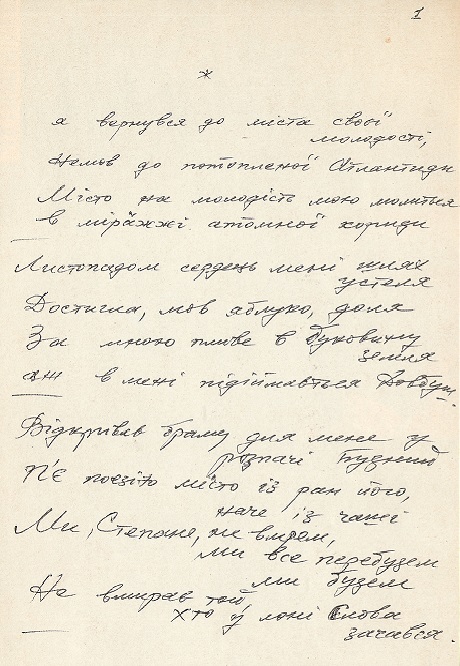 1
*
я вернувся до міста своєї
молодості,
Немов до потопленої Атлантиди
Місто на молодість мою молиться
в міражжі атомної кориди
Листопадом сердець мені шлях
устеля
Достигла, мов яблуко, доля
За мною пливе в Буковину
земля
аж в мені підіймається Довбуш.
Відкривав браму для мене у
розпачі
П'є поезію місто із ран його,
наче із чаші
Ми, Степане, не вмрем,
ми все перебудем
ми будем
Не вмирав той,
хто у лоні Слова
зачався.